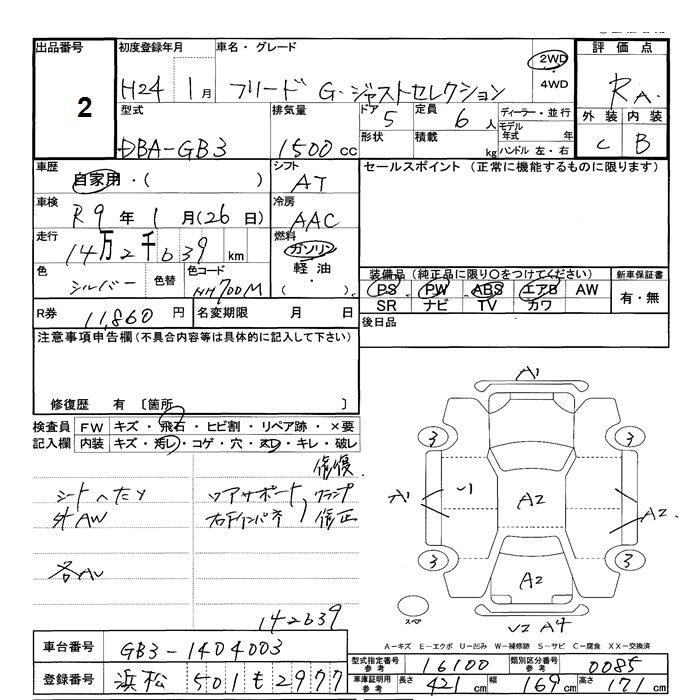 出品番号
2
初度登録年月
H24 1月
車名・グレード
フリード G・ジャストセレクション
2WD
・
4WD
評価点
RA
外装 内装
C B
型式
DBA-GB3
排気量
1500cc
ドア
5
定員
6人
形状
積載
kg
ディーラー・並行
モデル
年式 年
ハンドル 左・右
車歴
自家用・( )
シフト
AT
車検
R9年 1月(26日)
冷房
AAC
走行
14万2千639km
燃料
ガソリン
軽油
( ・ )
色
シルバー
色替
色コード
NH700M
セールスポイント (正常に機能するものに限ります)
装備品 (純正品に限り○をつけてください)
PS PW ABS エアB AW
SR ナビ TV カワ
新車保証書
有・無
後日品
R券
11,860円
名変期限 月 日
注意事項申告欄(不具合内容等は具体的に記入して下さい)
修復歴 有 〔箇所 〕
検査員
記入欄
FW キズ・飛石・ヒビ割・リペア跡・×要
内装 キズ・汚レ・コゲ・穴・スレ・キレ・破レ
修復
シートヘたり
外AW
各AU
コアサポート,クランプ
右インパネ 修正
142639
A1
3
3
A1
A2
A2
3
3
A2
スペア
A4
A-キズ E-エクボ U-凹み W-補修跡 S-サビ C-腐食 XX-交換済
車台番号
GB3-1404003
登録番号
浜松 501 も 2977
型式指定番号
参考
16100
類別区分番号
参考
0085
車庫証明用
参考
長さ 421cm 幅 169cm 高さ 171cm